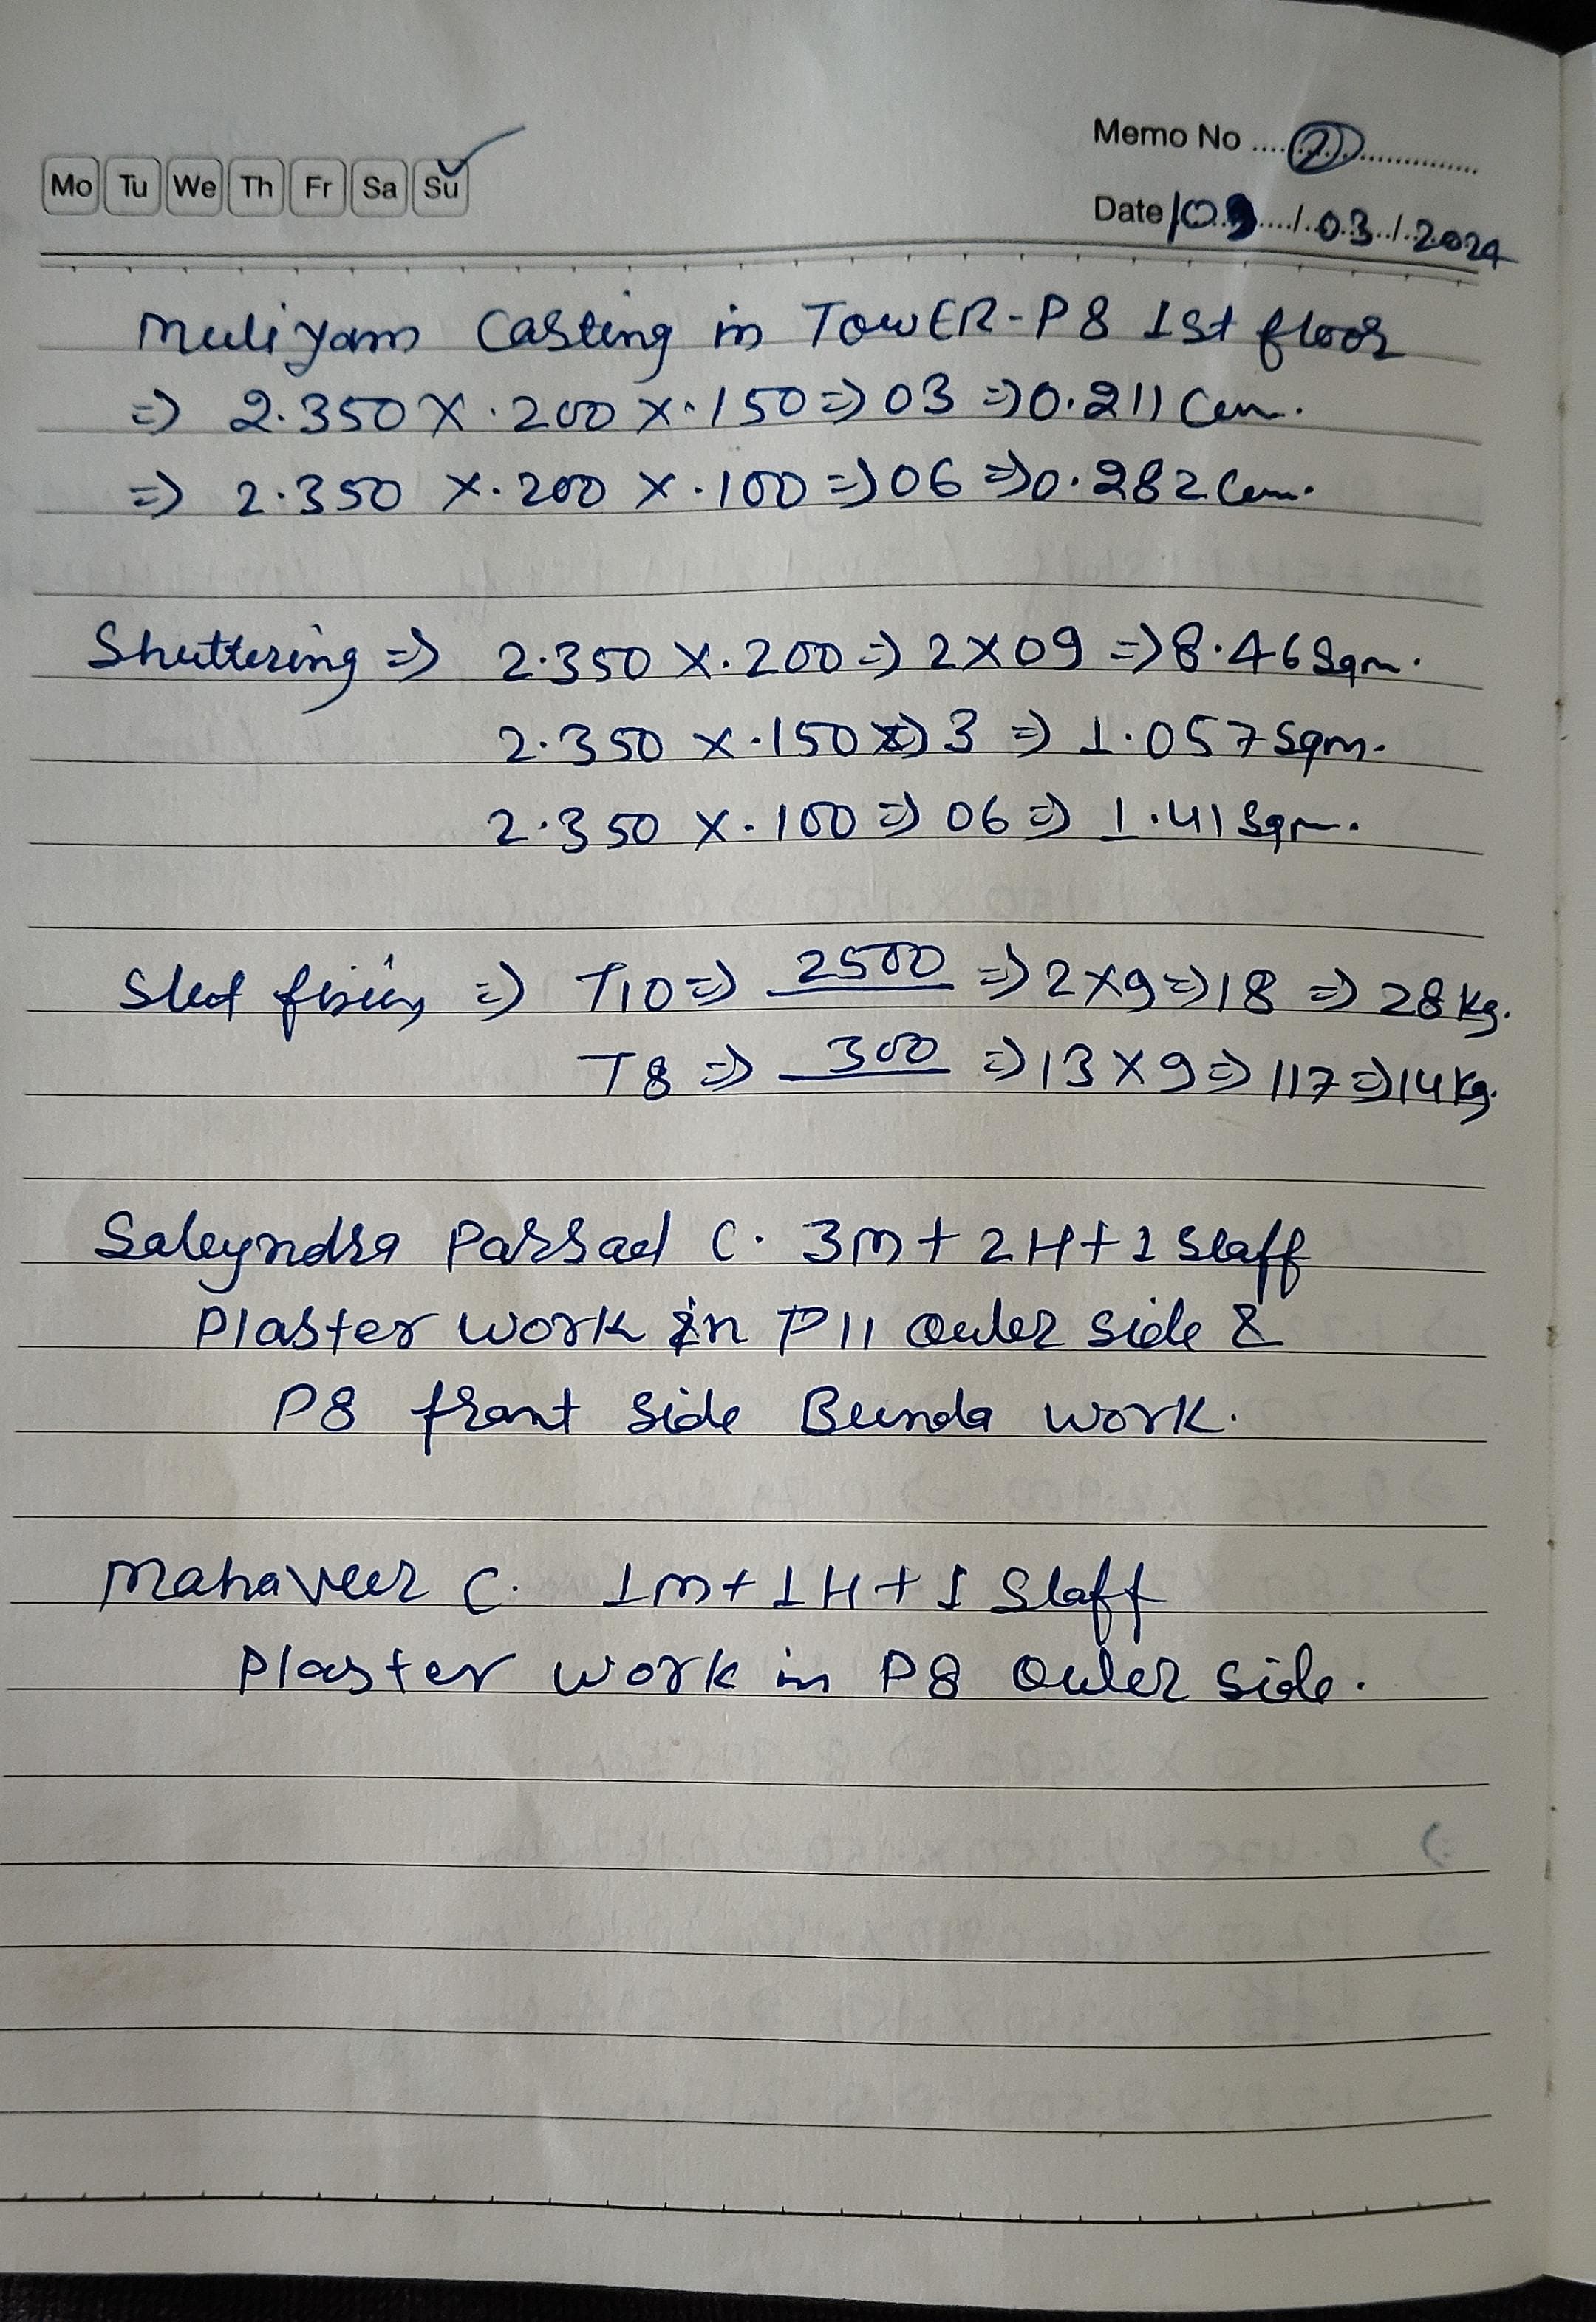 Memo No ....(2)....
Mo Tu We Th Fr Sa Su
Date /03/2024
Muliyam Casting in TowER-P8 1st floor
=> 2.350 X .200 X .150 => 03 => 0.211 Cum.
=> 2.350 X .200 X .100 => 06 => 0.282 Cum.
Shuttering => 2.350 X .200 => 2X09 => 8.46 Sqm.
2.350 X .150 => 3 => 1.057 Sqm.
2.350 X .100 => 06 => 1.41 Sqm.
=> T10 => 2500 => 2X9 => 18 => 28 Kg.
T8 => 300 => 13X9 => 117 => 14 Kg.
C. 3m + 2H + 1 Staff
Plaster work in P11 outer side &
P8 front side Bunda work.
Mahaveer C. 1m + 1H + 1 Staff
Plaster work in P8 outer side.